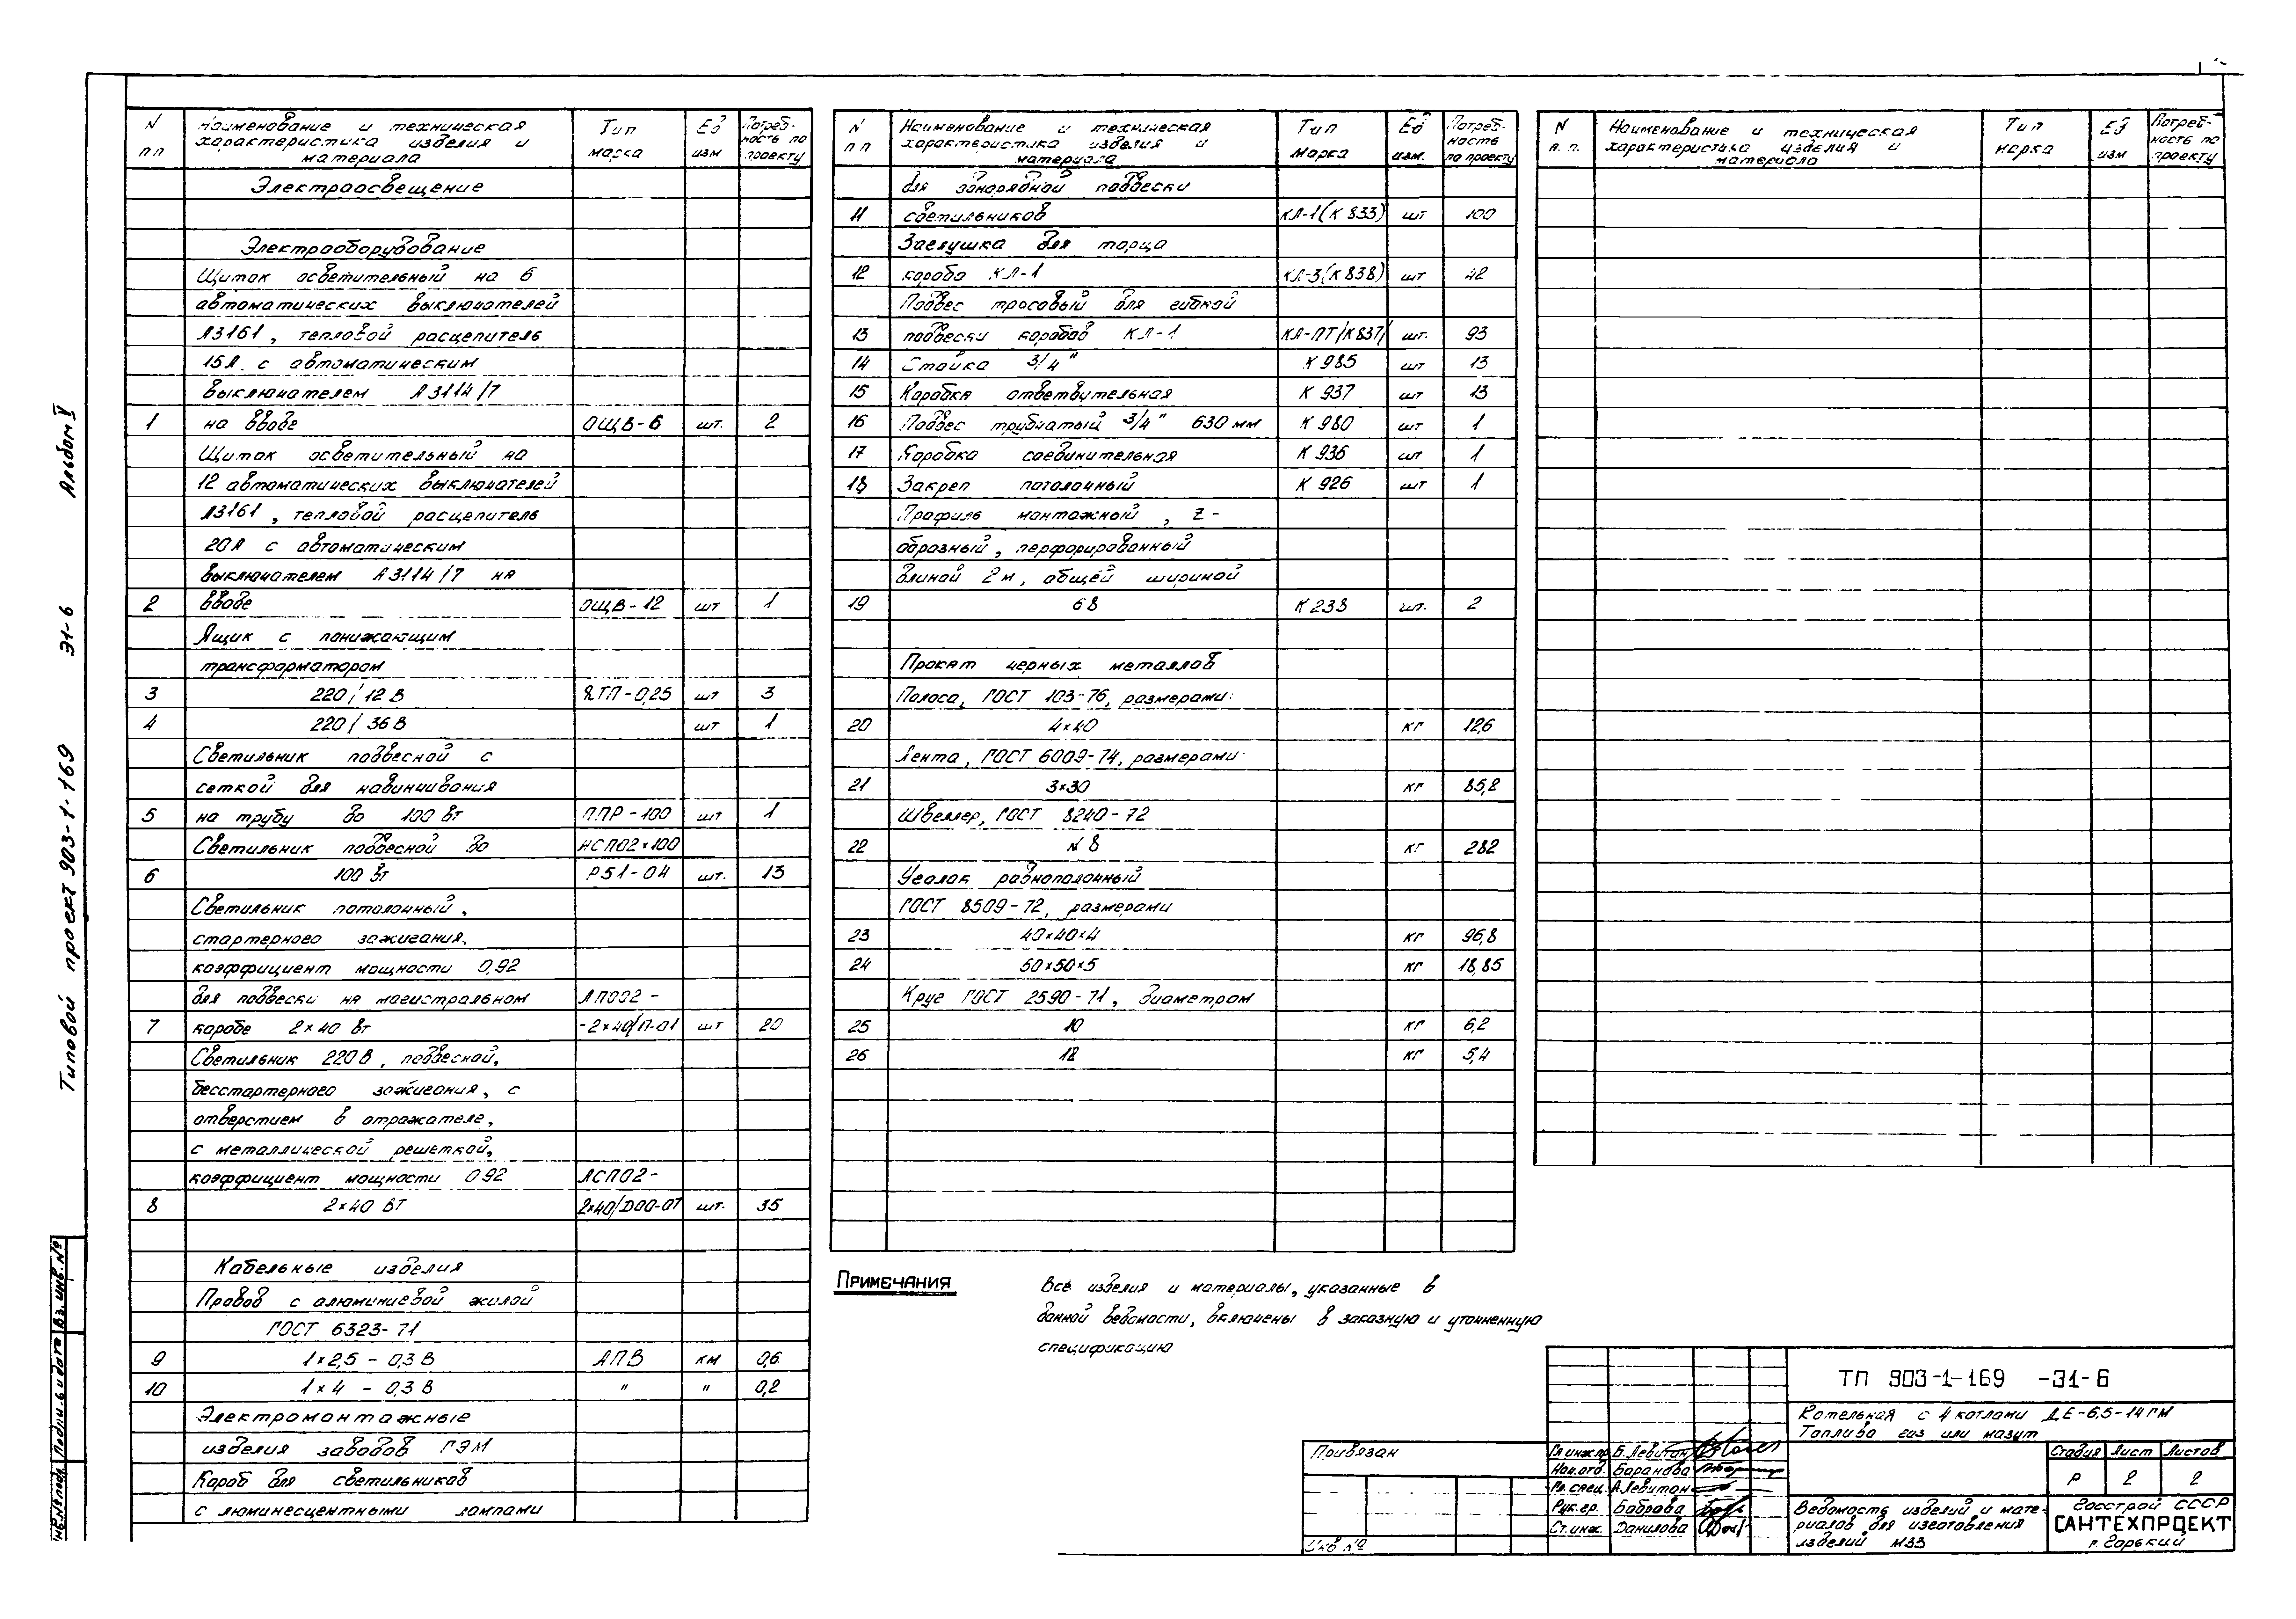 Альбом V
Э1-6
Типовой проект 903-1-169
Вз. инв. №
N пп | Наименование и техническая характеристика изделия и материала | Тип марка | Ед изм | Потребность по проекту
Электроосвещение
Электрооборудование
Щиток осветительный на 6
автоматических выключателей
А3161, тепловой расцепитель
15А. с автоматическим
выключателем А3114/7
1 на вводе ОЩВ-6 шт. 2
Щиток осветительный на
12 автоматических выключателей
А3161, тепловой расцепитель
20А с автоматическим
выключателем А3114/7 на
2 вводе ОЩВ-12 шт 1
Ящик с понижающим
трансформатором
3 220/12 В ЯТП-0,25 шт 3
4 220/36 В шт 1
Светильник подвесной с
сеткой для навинчивания
5 на трубу до 100 Вт ППР-100 шт 1
Светильник подвесной до НСП02×100
6 100 Вт Р51-04 шт. 13
Светильник потолочный,
стартерного зажигания,
коэффициент мощности 0,92
для подвески на магистральном ЛПО02-
7 коробе 2×40 Вт -2×40/П-01 шт 20
Светильник 220В, подвесной,
бесстартерного зажигания, с
отверстием в отражателе,
с металлической решеткой,
коэффициент мощности 0,92 ЛСП02-
8 2×40 Вт 2×40/Д00-07 шт. 35
Кабельные изделия
Провод с алюминиевой жилой
ГОСТ 6323-71
9 1×2,5 - 0,3 В АПВ км 0,6
10 1×4 - 0,3 В " " 0,2
Электромонтажные
изделия заводов ГЭМ
Короб для светильников
с люминесцентными лампами
N пп | Наименование и техническая характеристика изделия и материала | Тип марка | Ед изм. | Потребность по проекту
для однорядной подвески
11 светильников КЛ-1(К 833) шт 100
Заглушка для торца
12 короба КЛ-1 КЛ-3(К 838) шт 42
Подвес тросовый для гибкой
13 подвески коробов КЛ-1 КЛ-ПТ/К837/ шт. 93
14 Стойка 3/4" К 985 шт 13
15 Коробка ответвительная К 937 шт 13
16 Подвес трубчатый 3/4" 630 мм К 980 шт 1
17 Коробка соединительная К 936 шт 1
18 Закреп потолочный К 926 шт 1
Профиль монтажный, Z-
образный, перфорированный
длиной 2м, общей шириной
19 68 К 238 шт. 2
Прокат черных металлов
Полоса, ГОСТ 103-76, размерами:
20 4×40 кг 12,6
Лента, ГОСТ 6009-74, размерами:
21 3×30 кг 85,2
Швеллер, ГОСТ 8240-72
22 № 8 кг 282
Уголок равнополочный
ГОСТ 8509-72, размерами
23 40×40×4 кг 96,8
24 50×50×5 кг 18,85
Круг ГОСТ 2590-71, диаметром
25 10 кг 6,2
26 12 кг 5,4
N п.п. | Наименование и техническая характеристика изделия и материала | Тип марка | Ед изм | Потребность по проекту
Примечания
Все изделия и материалы, указанные в
данной ведомости, включены в заказную и уточненную
спецификацию
ТП 903-1-169 -Э1-6
Котельная с 4 котлами ДЕ-6,5-14ГМ
Топливо газ или мазут
Привязан
Инв №
Гл инж.пр Б.Левитан
Нач.отд. Баранова
Гл. спец. А.Левитан
Рук.гр. Боброва
Ст.инж. Данилова
Стадия Лист Листов
Р 2 2
Ведомость изделий и мате-
риалов для изготовления
изделий МЗЭ
Госстрой СССР
САНТЕХПРОЕКТ
г. Горький